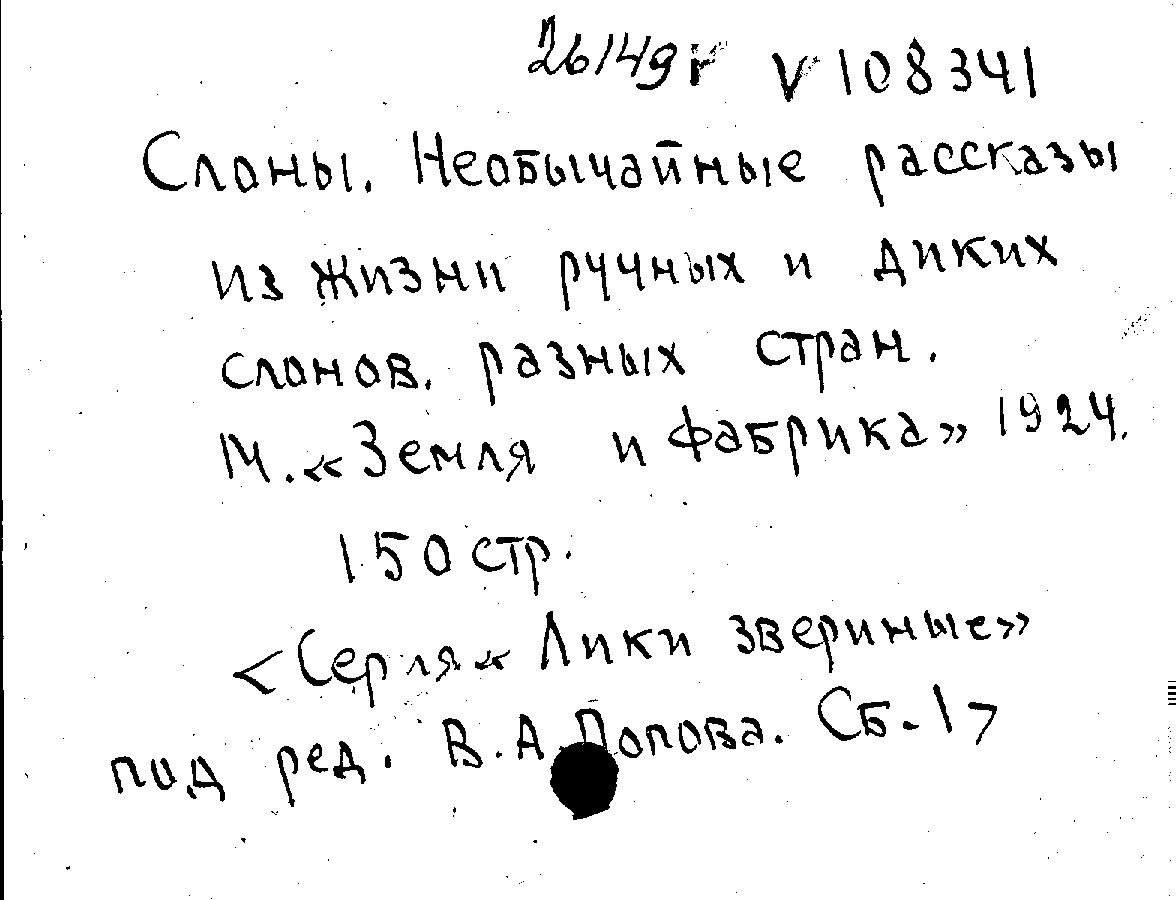 26149г V 108341
Слоны. Необычайные рассказы
из жизни ручных и диких
слонов. разных стран.
М. «Земля и фабрика» 1924.
150 стр.
<Серия « Лики звериные»
под ред. В.А. Попова. Сб-1>